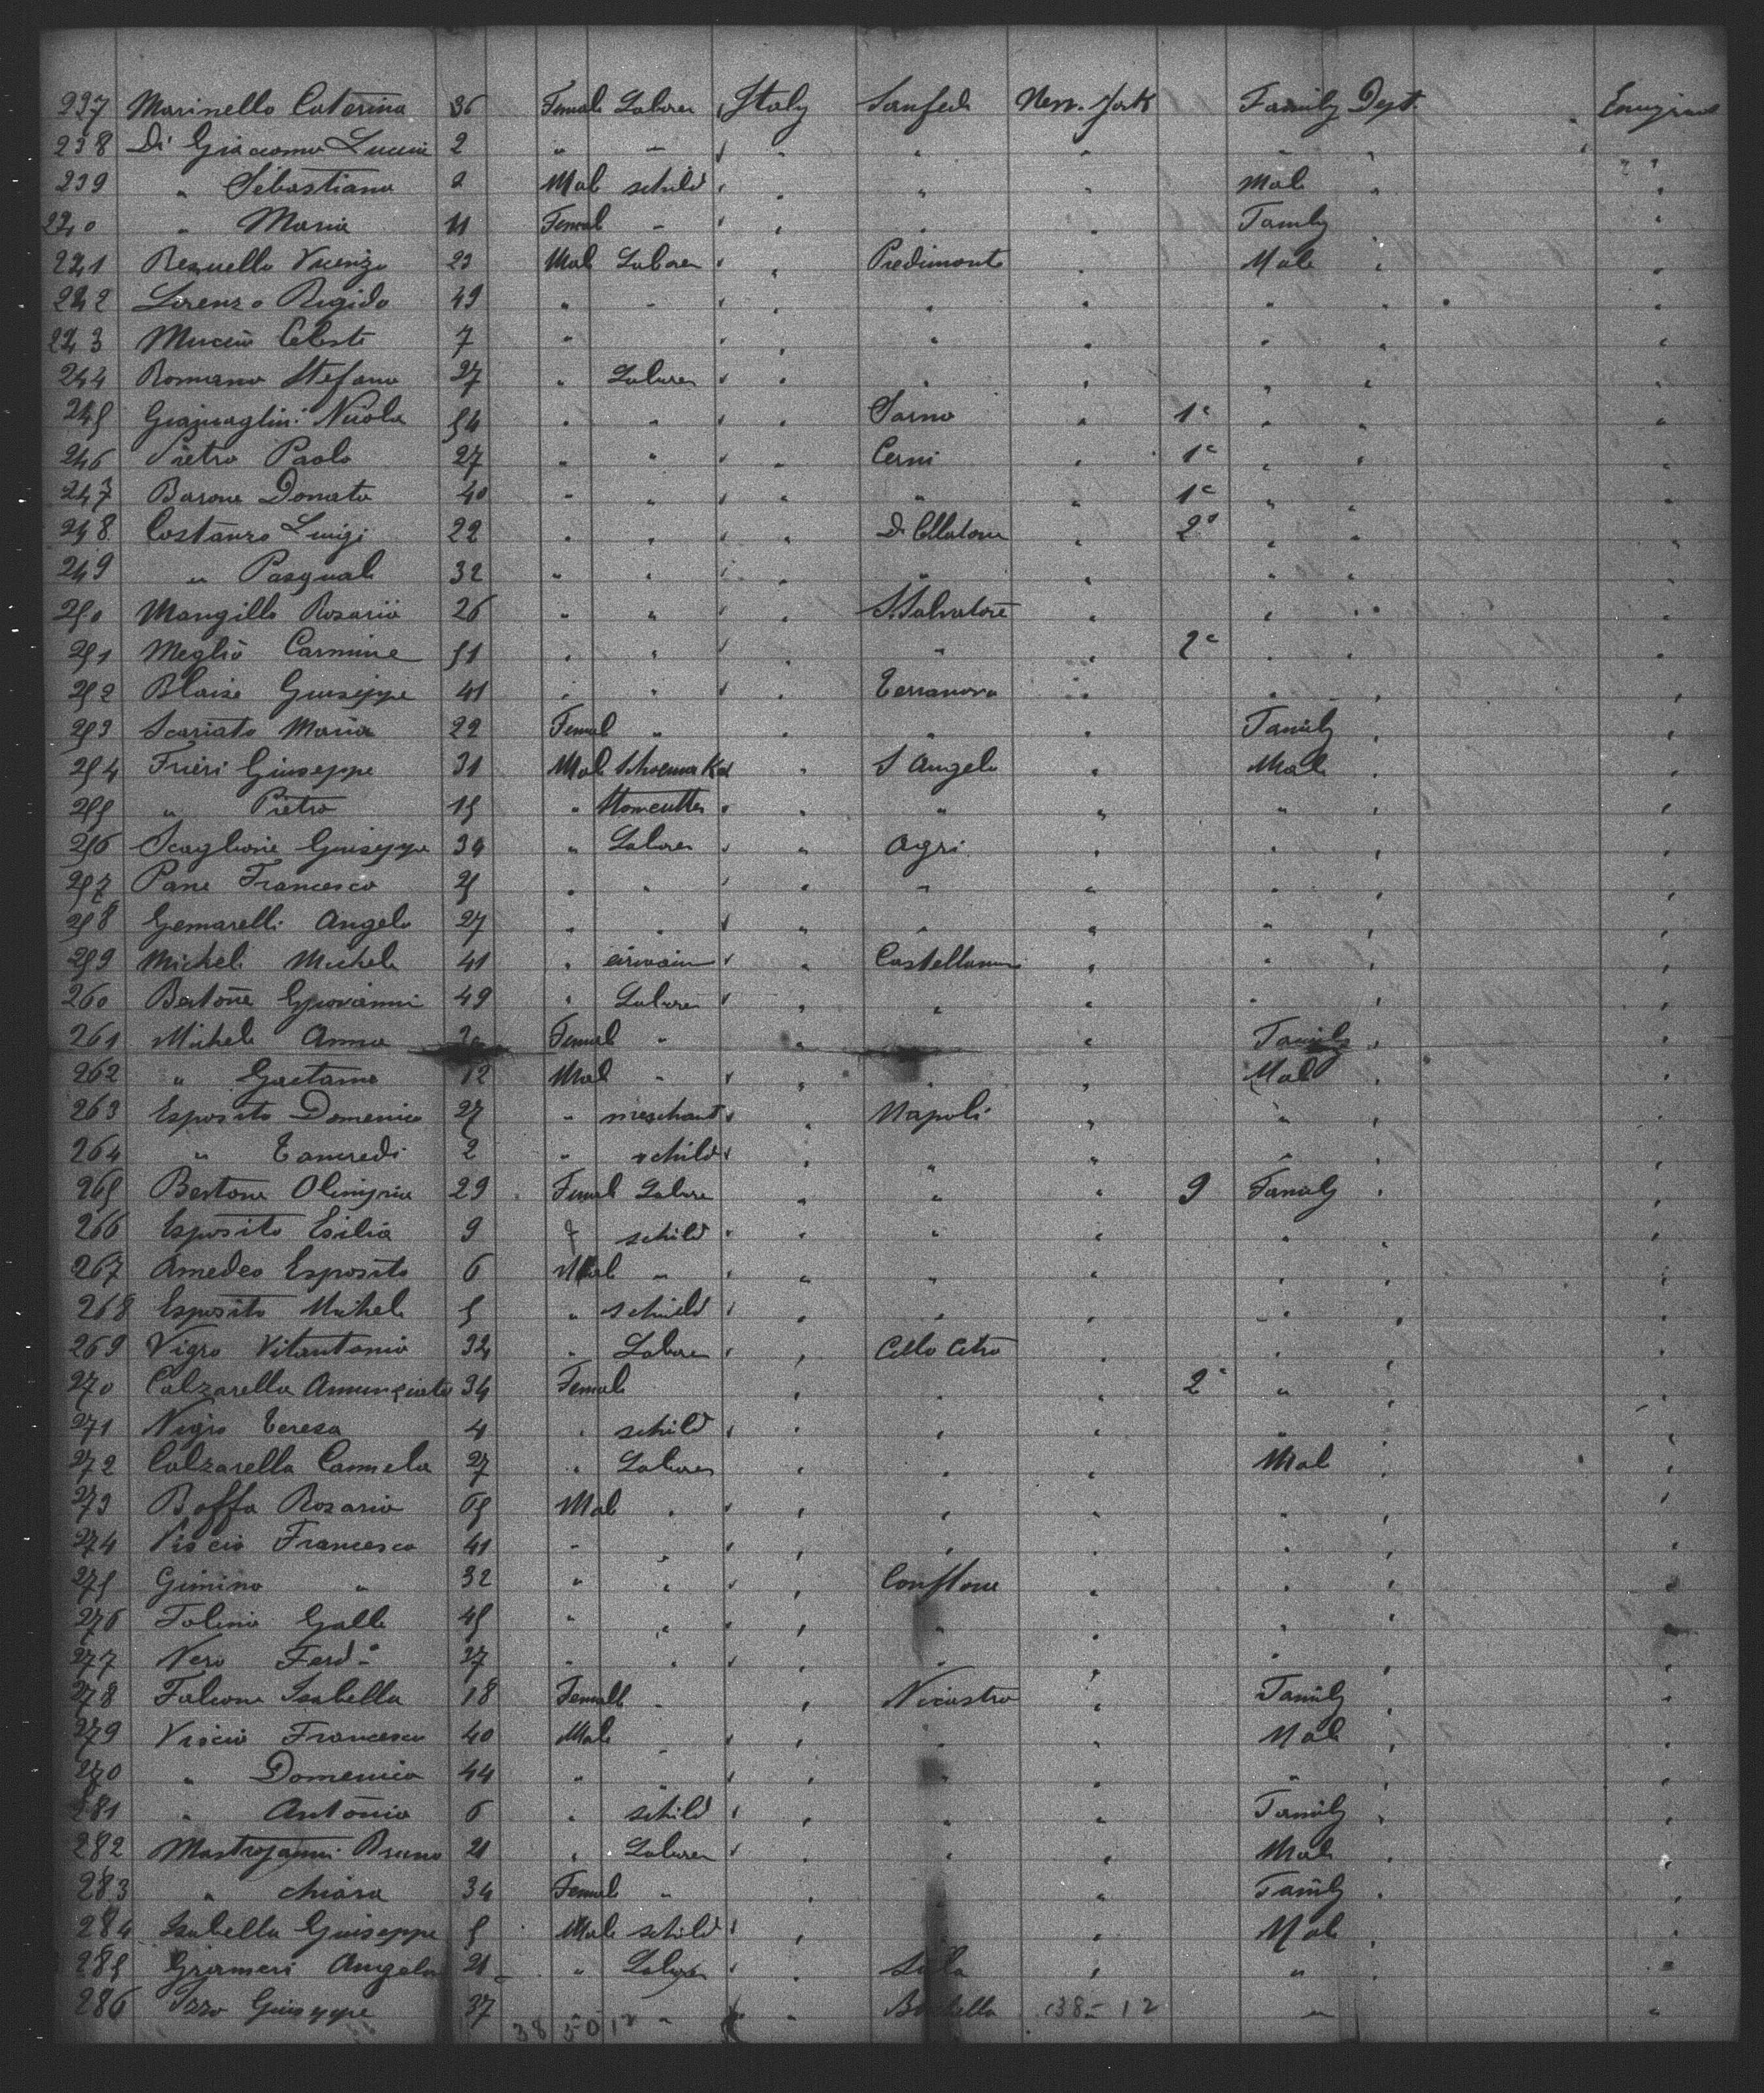 237 Marinello Caterina 36 Female Laborer Italy Sanfede New-York Family Dept.
238 Di Giacomo Luccia 2 " " " " " " "
239 " Sebastiano 2 Male schild " " " Male "
240 " Maria 11 Female " " " " Family
241 Vicenzo 23 Male Laborer " Piedimonte " Male "
242 Lorenzo Rigido 49 " " " " " " "
243 Celeste 7 " " " " " "
244 Romano Stefano 27 " Laborer " " " " "
245 Nicola 54 " " Sarno " 1c " "
246 Pietro Paolo 27 " " " Cerni " 1c " "
247 Barone Donato 40 " " " " " 1c " "
248 Costanzo Luigi 22 " " " " 2c " "
249 " Pasquale 32 " " " " " " "
250 Mangillo Rosario 26 " " " S. Salvatore " " "
251 Meglio Carmine 51 " " " " " 2c " "
252 Blaise Giuseppe 41 " " " Terranova " " "
253 Scariato Maria 22 Female " " " " Family "
254 Frieri Giuseppe 31 Male Schoemaker " S Angelo " Male "
255 " Pietro 15 " Stomcutter " " " " "
256 Scaglione Giuseppe 34 " Laborer " Agri " " "
257 Pane Francesco 25 " " " " " " "
258 Gemarelli Angelo 27 " " " " " " "
259 Micheli Michele 41 " " " " "
260 Bertone Giovanni 49 " Laborer " " " " "
261 Michele Anna Female " " " Family "
262 " Gaetano 12 Male " " " " Male "
263 Esposito Domenico 27 " merchant " Napoli " " "
264 " Tancredi 2 " schild " " " " "
265 Bertone Olimpia 29 Female Labore " " " 9 Family "
266 Esposito Esilia 9 f schild " " " " "
267 Amedeo Esposito 6 Male " " " " " "
268 Esposito Michele 5 " schield " " " " "
269 Vigro Vitantonio 32 " Laborer " " "
270 Calzarella Annunziata 34 Female " " " 2c "
271 Nigro Teresa 4 " schild " " " "
272 Calzarella Carmela 27 " Laborer " " " Male "
273 Boffa Rosario 65 Male " " " " " "
274 Viscio Francesco 41 " " " " " " "
275 Gimino " 32 " " " " " "
276 Folino Galle 45 " " " " " "
277 Nero Ferdo 27 " " " " " "
278 Falcone Isabella 18 Femall " " Nicastro " Family "
279 Viscio Francesco 40 Male " " " " Male "
270 " Domenico 44 " " " " " " "
281 " Antonio 6 " schild " " " Family "
282 Mastrojanni Bruno 21 " Laborer " " " Male "
283 " Chiara 34 Female " " " Family "
284 Isabella Guiseppe 5 Male schild " " Male "
285 Angelo 21 " Laborer " " "
286 Izzo Giuseppe 37 " " " 38-12 "
38 50 12